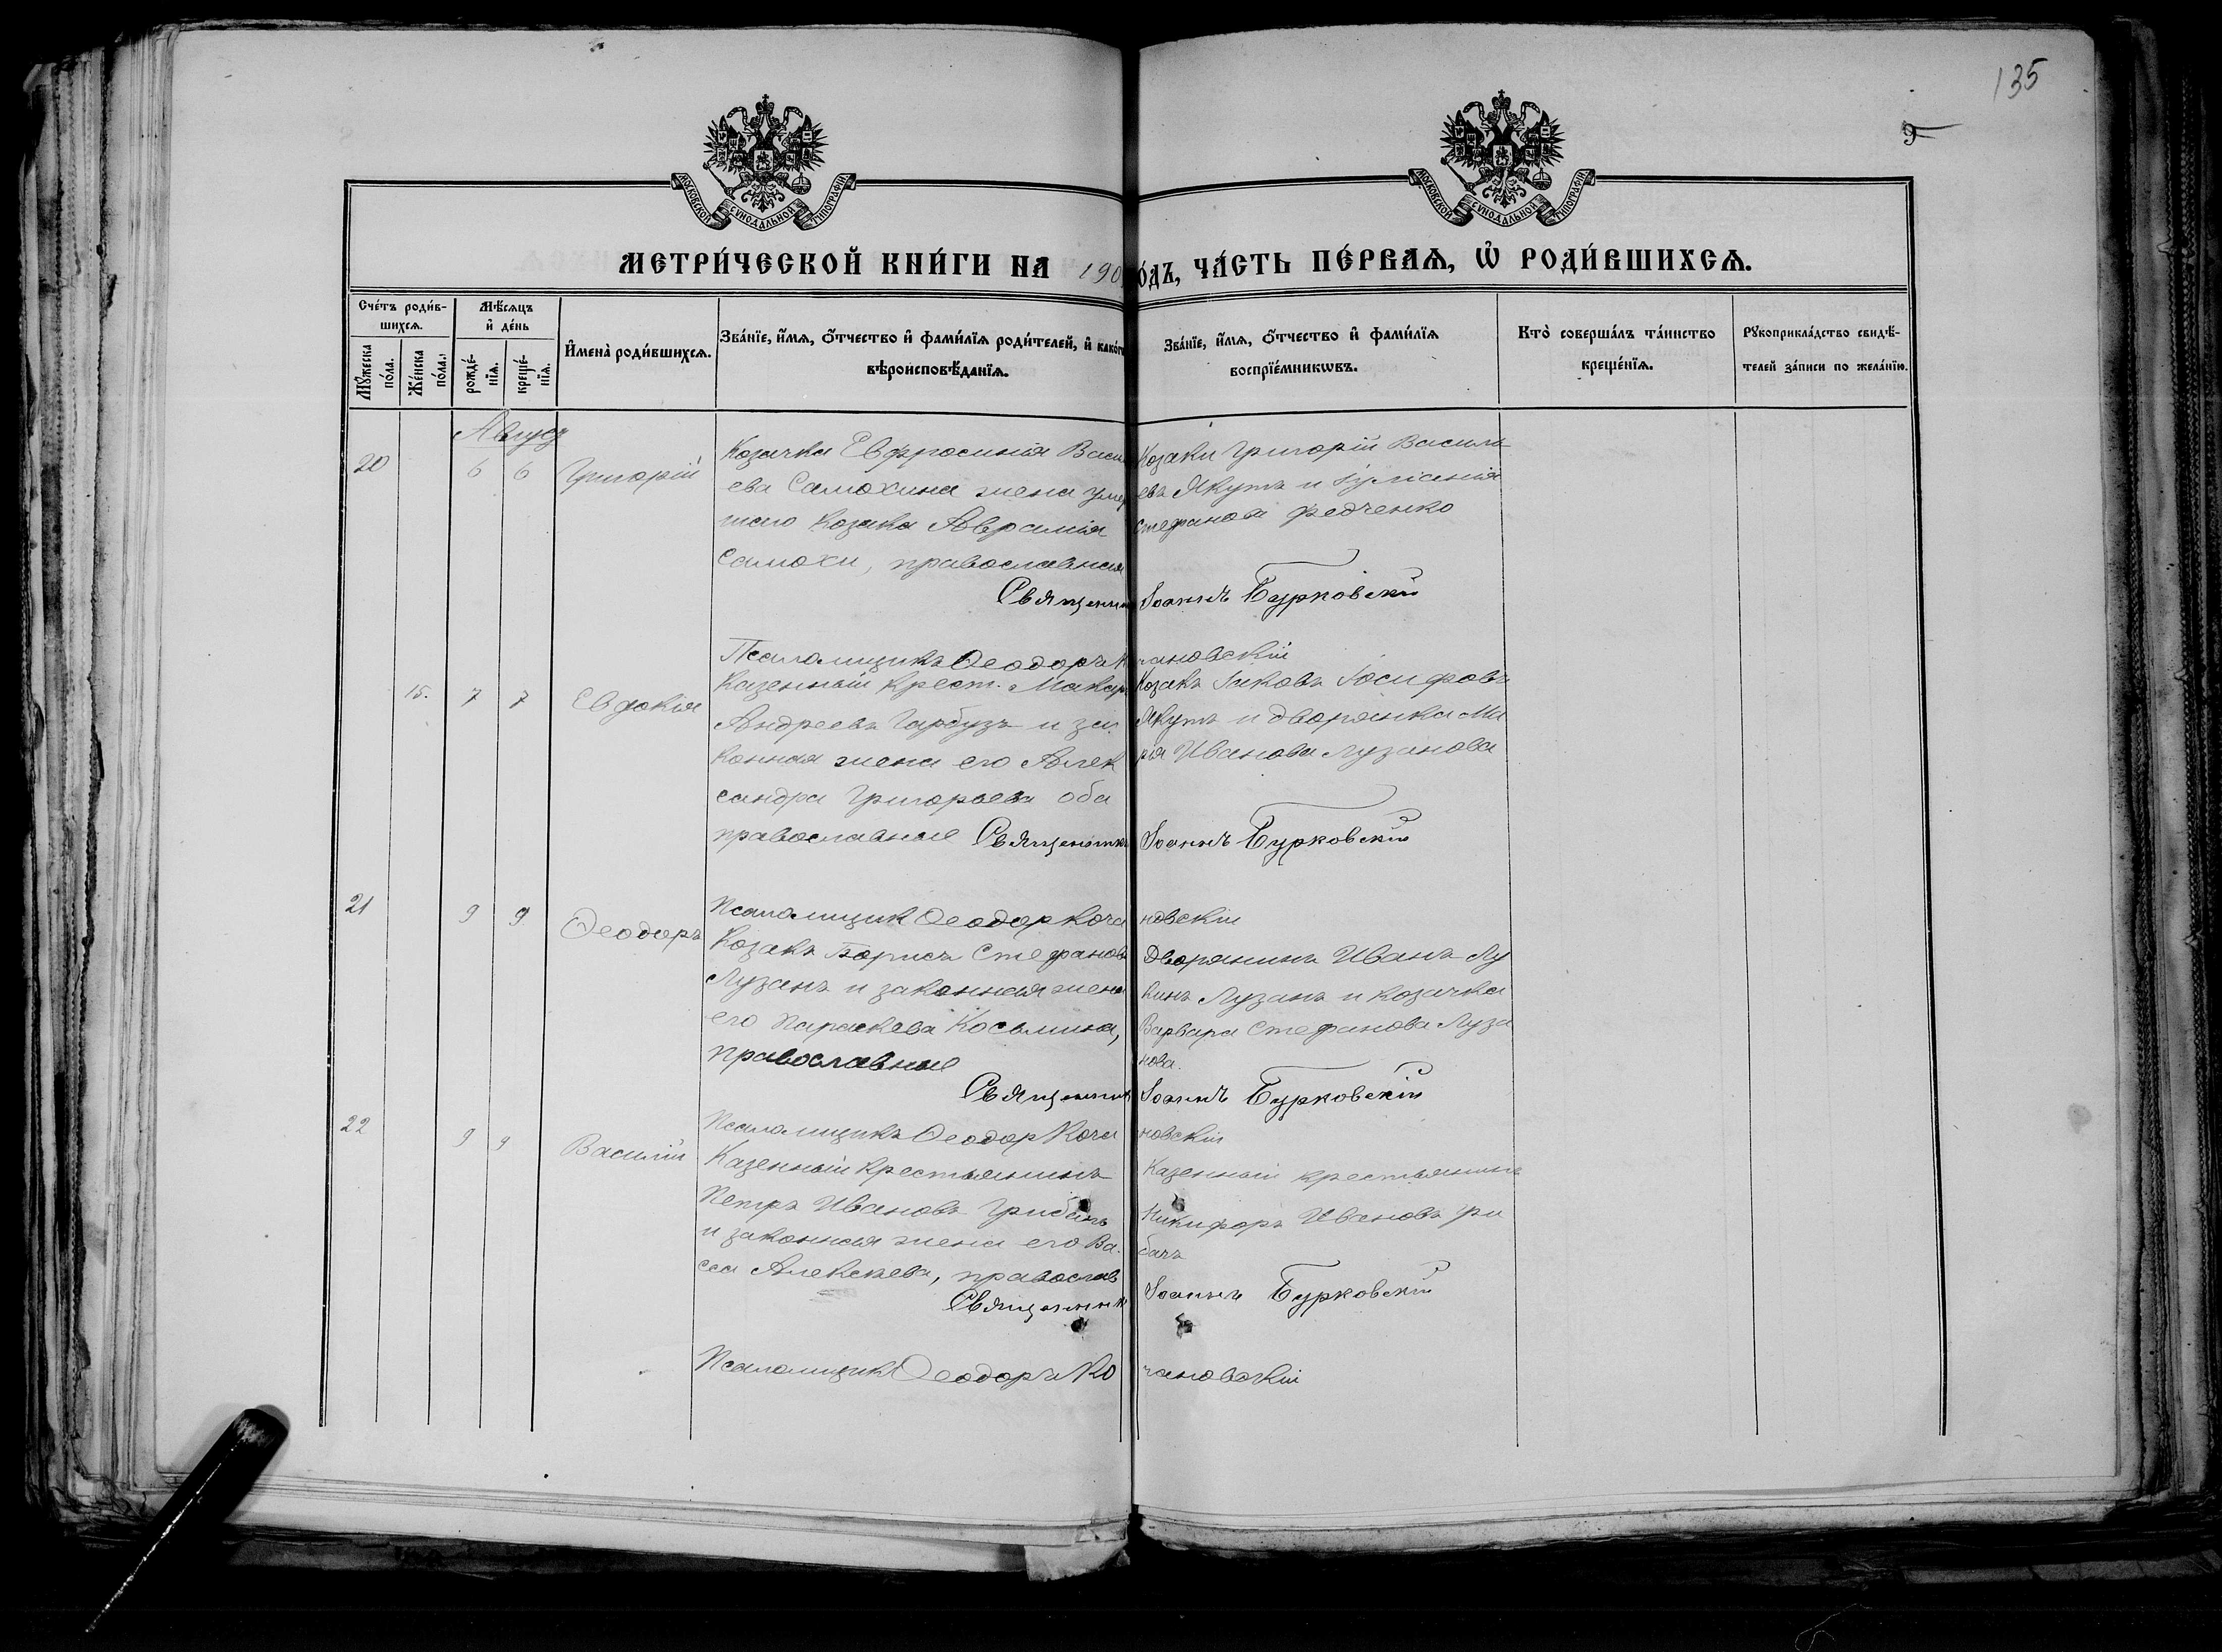 135
9
МОСКОВСКОЙ СѴНОДАЛЬНОЙ ТИПОГРАФІИ
МОСКОВСКОЙ СѴНОДАЛЬНОЙ ТИПОГРАФІИ
МЕТРИ́ЧЕСКОЙ КНИ́ГИ НА 190
о́дъ, ЧА́СТЬ ПЕ́РВАѦ, Ѡ҆ РОДИ́ВШИХСѦ.
Сче́тъ роди́в-
шихсѧ.
Мꙋ́жеска
по́ла.
Же́нска
по́ла.
Мѣ́сѧцъ
и҆ де́нь
рожде́-
нїѧ.
креще́-
нїѧ.
И҆мена̀ роди́вшихсѧ.
Зва́нїе, и҆́мѧ, ѻ҆́тчество и҆ фами́лїѧ роди́телей, и҆ како́гѡ
вѣроисповѣ́данїѧ.
Зва́нїе, и҆́мѧ, ѻ҆́тчество и҆ фами́лїѧ
воспрїе́мникѡвъ.
Кто̀ соверша́лъ та́инство
креще́нїѧ.
Рꙋкоприкла́дство свидѣ́-
телей за́писи по жела́нїю.
Август
20
6 6
Григорій
Козачка Евфросинія Васи
ева Самохина жена умер
шаго козака Аврамія
Самохи, православная
Козаки Григорій Василь
евъ Якутъ и
Стефанова Федченко
Священник Іоаннъ Бурковскій
Псаломщикъ Ѳеодоръ К
чановскій
15.
7 7
Евдокія
Казенный крест. Макар
Андреевъ Гарбузъ и за
конная жена его Алек
сандра Григорьева оба
православные
Козакъ Іаковъ Іосифовъ
Якутъ и дворянка Ма
рія Иванова Лузанова
Священникъ Іоаннъ Бурковскій
Псаломщик Ѳеодор Коча
новскій
21
9 9
Ѳеодоръ
Козакъ Борисъ Стефановъ
Лузанъ и законная жена
его Параскева Косьмина,
православные
Дворянинъ Иванъ Лу
кинъ Лузанъ и козачка
Варвара Стефанова Луза
нова.
Священник Іоаннъ Бурковскій
Псаломщикъ Ѳеодор Коча
новскій
22
9 9
Василій
Казенный крестьянинъ
Петръ Ивановъ Грибачъ
и законная жена его Ва.
сса Алексѣева, православ
Казенный крестьянинъ
Никифоръ Ивановъ Гри
бачъ
Священник Іоаннъ Бурковскій
Псаломщикъ Ѳеодоръ Ко
чановскій